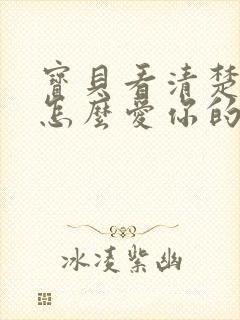 寶貝看清楚
怎麼愛你的
冰凌紫幽